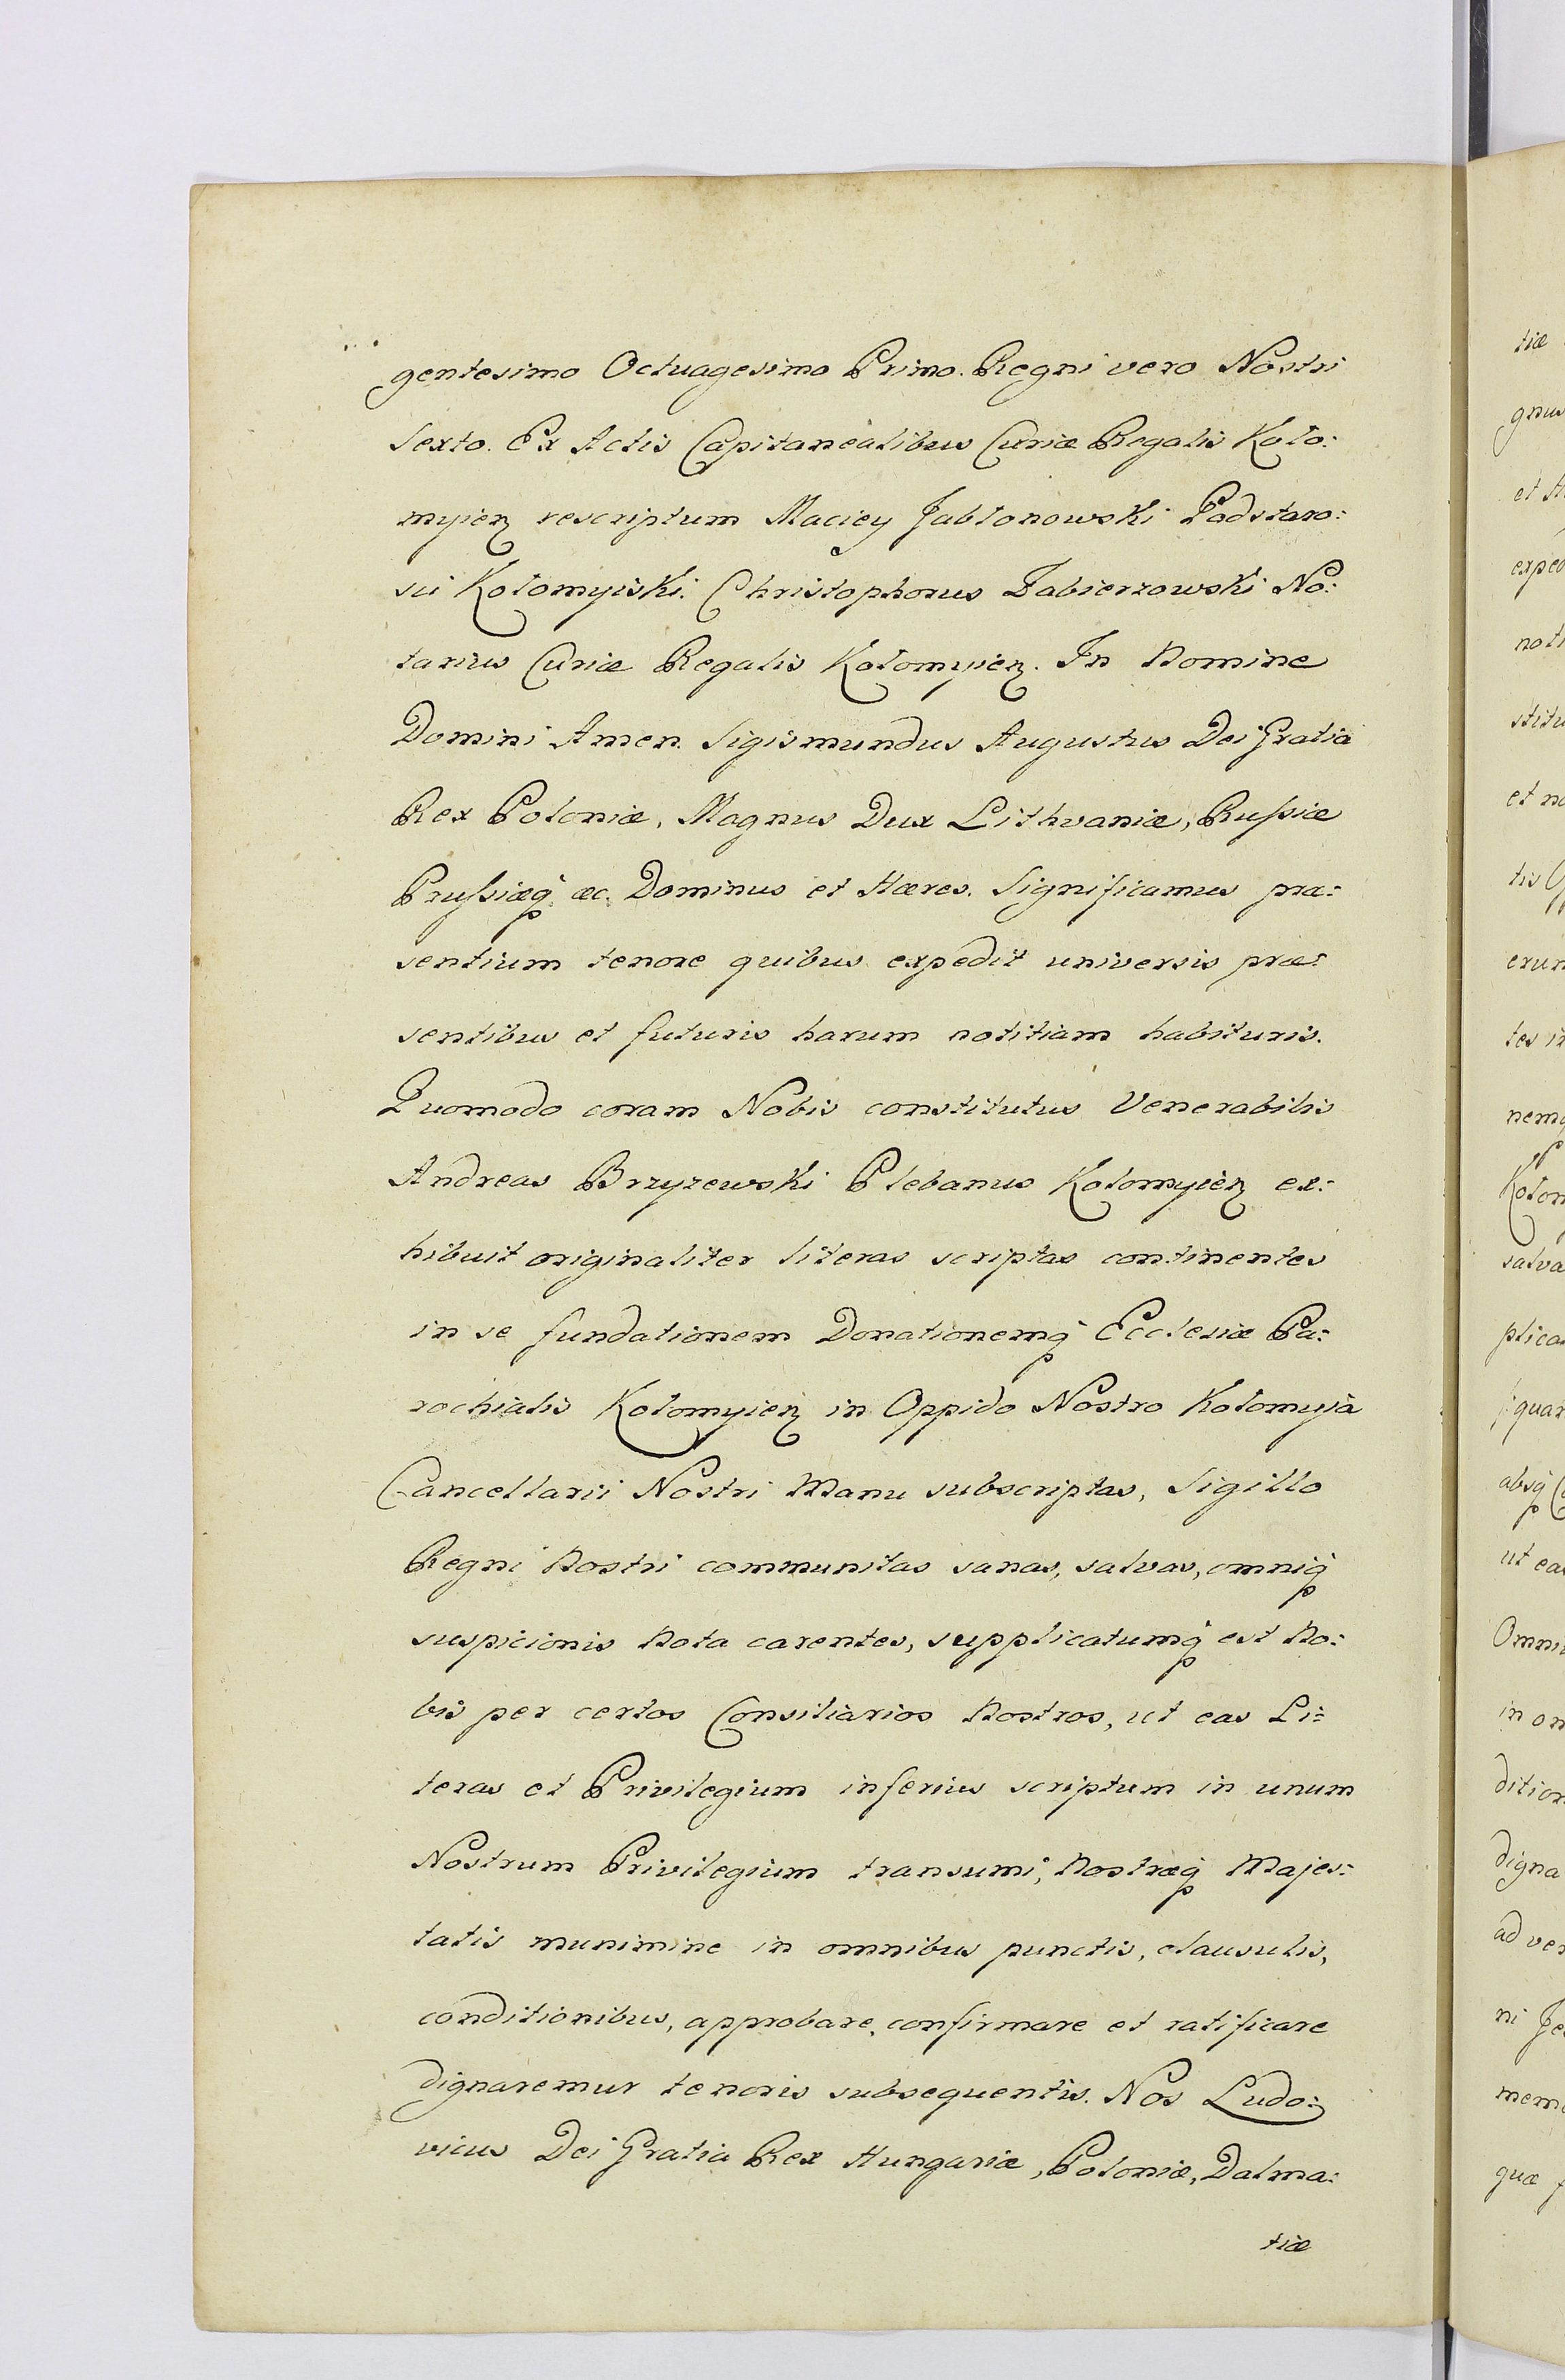 gentesimo Octuagesimo Primo. Regni vero Nostri
Sexto. Ex Actis Capitanealibus Curiæ Regalis Kolo:
myien rescriptum Maciey Jablonowski Podstaro:
sci Kolomyiski. Christophorus Zabierzowski No:
tarius Curiæ Regalis Kolomyien. In Nomine
Domini Amen. Sigismundus Augustus Dei Gratia
Rex Poloniæ, Magnus Dux Lithvaniæ, Russiæ
Prussiæq. æc. Dominus et Hæres. Significamus præ:
sentium tenore quibus expedit universis præ:
sentibus et futuris harum notitiam habituris.
Quomodo coram Nobis constitutus Venerabilis
Andreas Brzyzewski Plebanus Kolomyien ex:
hibuit originaliter literas scriptas continentes
in se fundationem Donationemq Ecclesiæ Pa:
rochialis Kolomyien in Oppido Nostro Kolomyja
Cancellarii Nostri Manu subscriptas, Sigillo
Regni Nostri communitas sanas, salvas, omniq
suspicionis Nota carentes, supplicatumq est No:
bis per certos Consiliarios Nostros, ut eas Li:
teras et Privilegium inferius scriptum in unum
Nostrum Privilegium transumi, Nostræq Majes:
tatis munimine in omnibus punctis, clausulis,
conditionibus, approbare, confirmare et ratificare
dignaremur tenoris subsequentis. Nos Ludo:
vicus Dei Gratia Rex Hungariæ, Poloniæ, Dalma:
tiæ